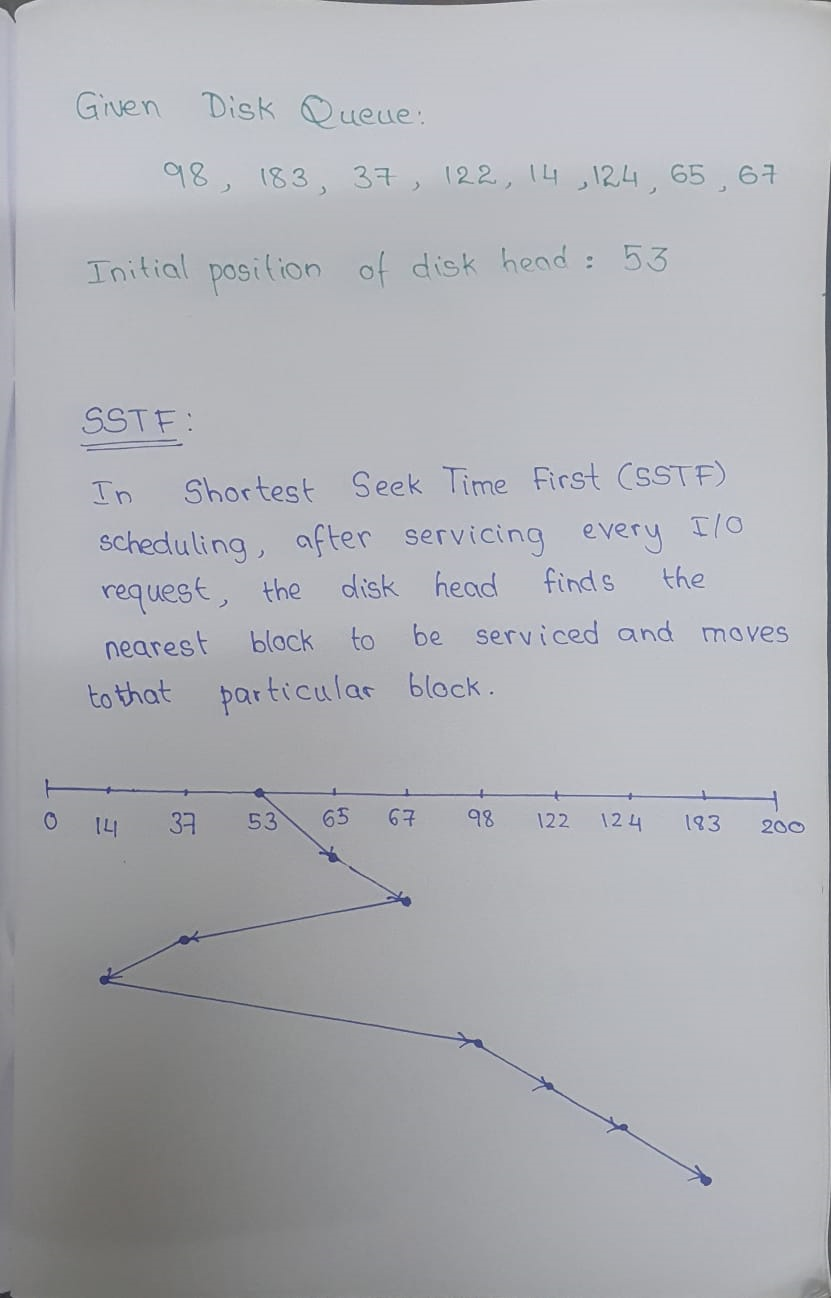 Given Disk Queue:
98, 183, 37, 122, 14, 124, 65, 67
Initial position of disk head: 53
SSTF:
In Shortest Seek Time First (SSTF)
scheduling, after servicing every I/O
request, the disk head finds the
nearest block to be serviced and moves
to that particular block.
0 14 37 53 65 67 98 122 124 183 200